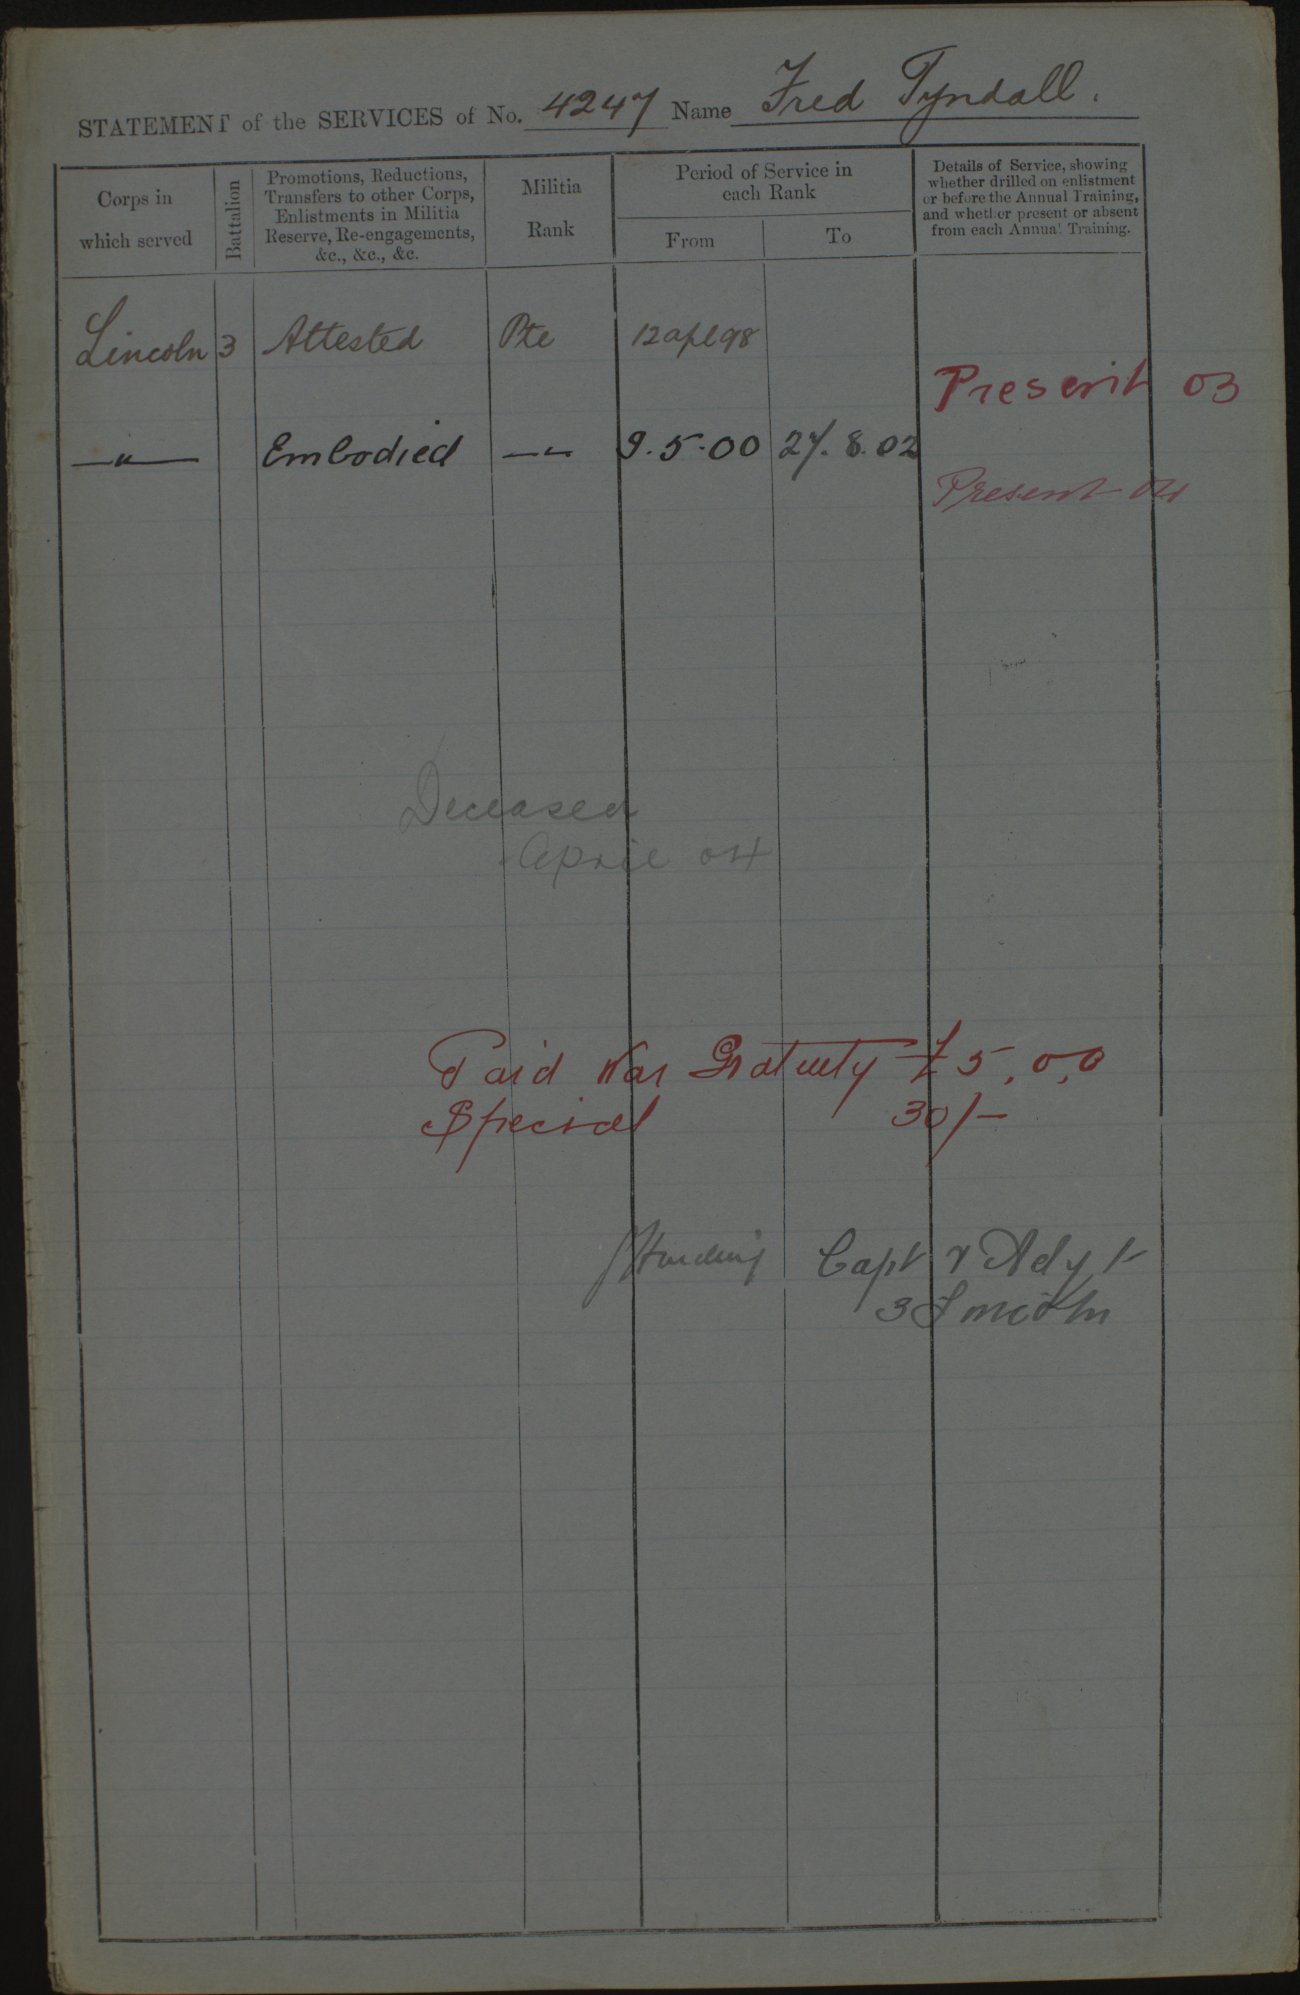 STATEMENT of the SERVICES of No. 4247 Name Fred Tyndall.
Corps in which served
Battalion
Promotions, Reductions,
Transfers to other Corps,
Enlistments in Militia
Reserve, Re-engagements,
&c., &c., &c.
Militia
Rank
Period of Service in
each Rank
From
To
Details of Service, showing
whether drilled on enlistment
or before the Annual Training,
and whether present or absent
from each Annual Training.
Lincoln 3 Attested Pte 12 apl 98
Present 03
—"— Embodied —"— 9.5.00 27.8.02
Present 04
Deceased
April 04
Paid War Gratuity £5,0,0
Special 30/-
Capt & Adjt
3 Lincoln